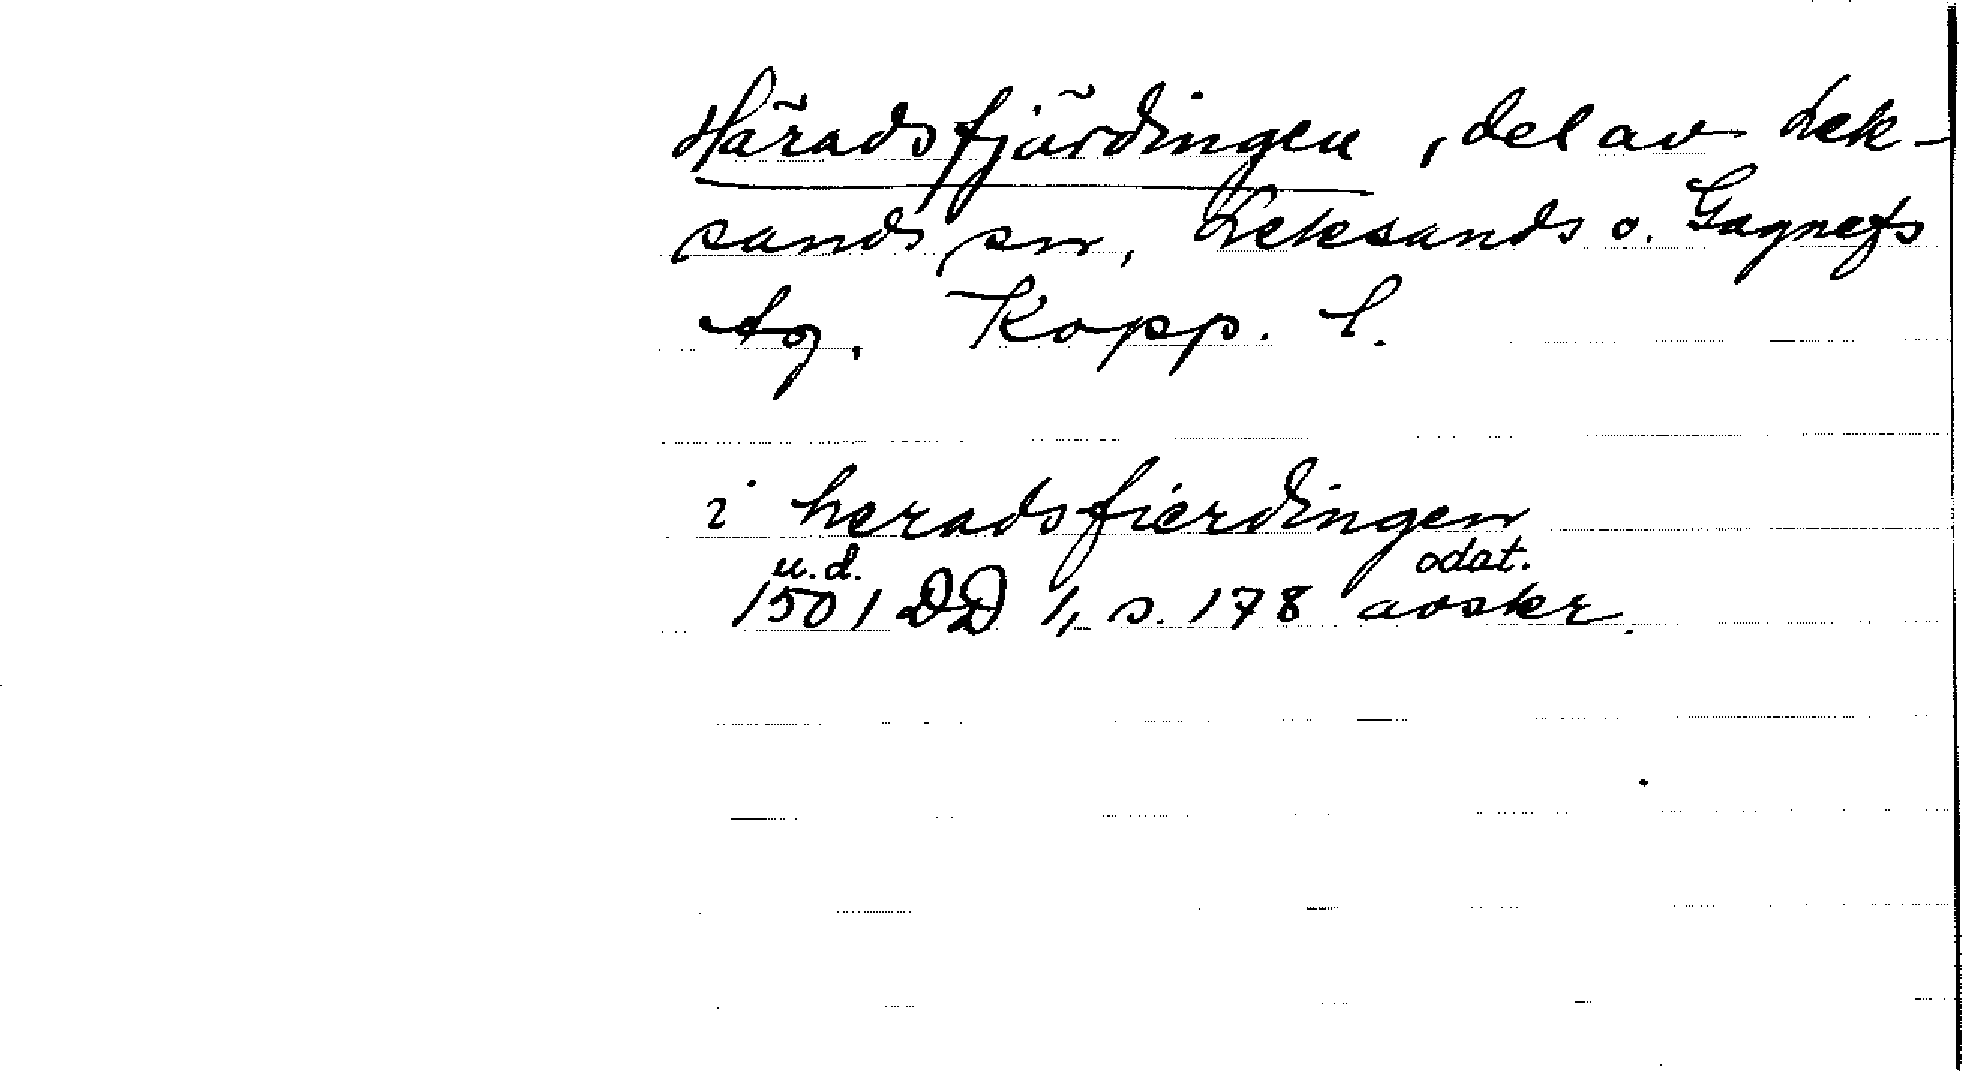 Häradsfjärdingen, del av Lek-
sands sn, Leksands o. Gagnefs
tg. Kopp. l.
i heradsfierdingen
u.d. odat.
1501 DD 1, s. 178 avskr.